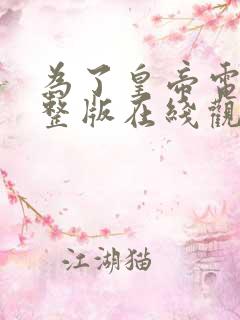 為了皇帝電
整版在綫觀
江湖猫